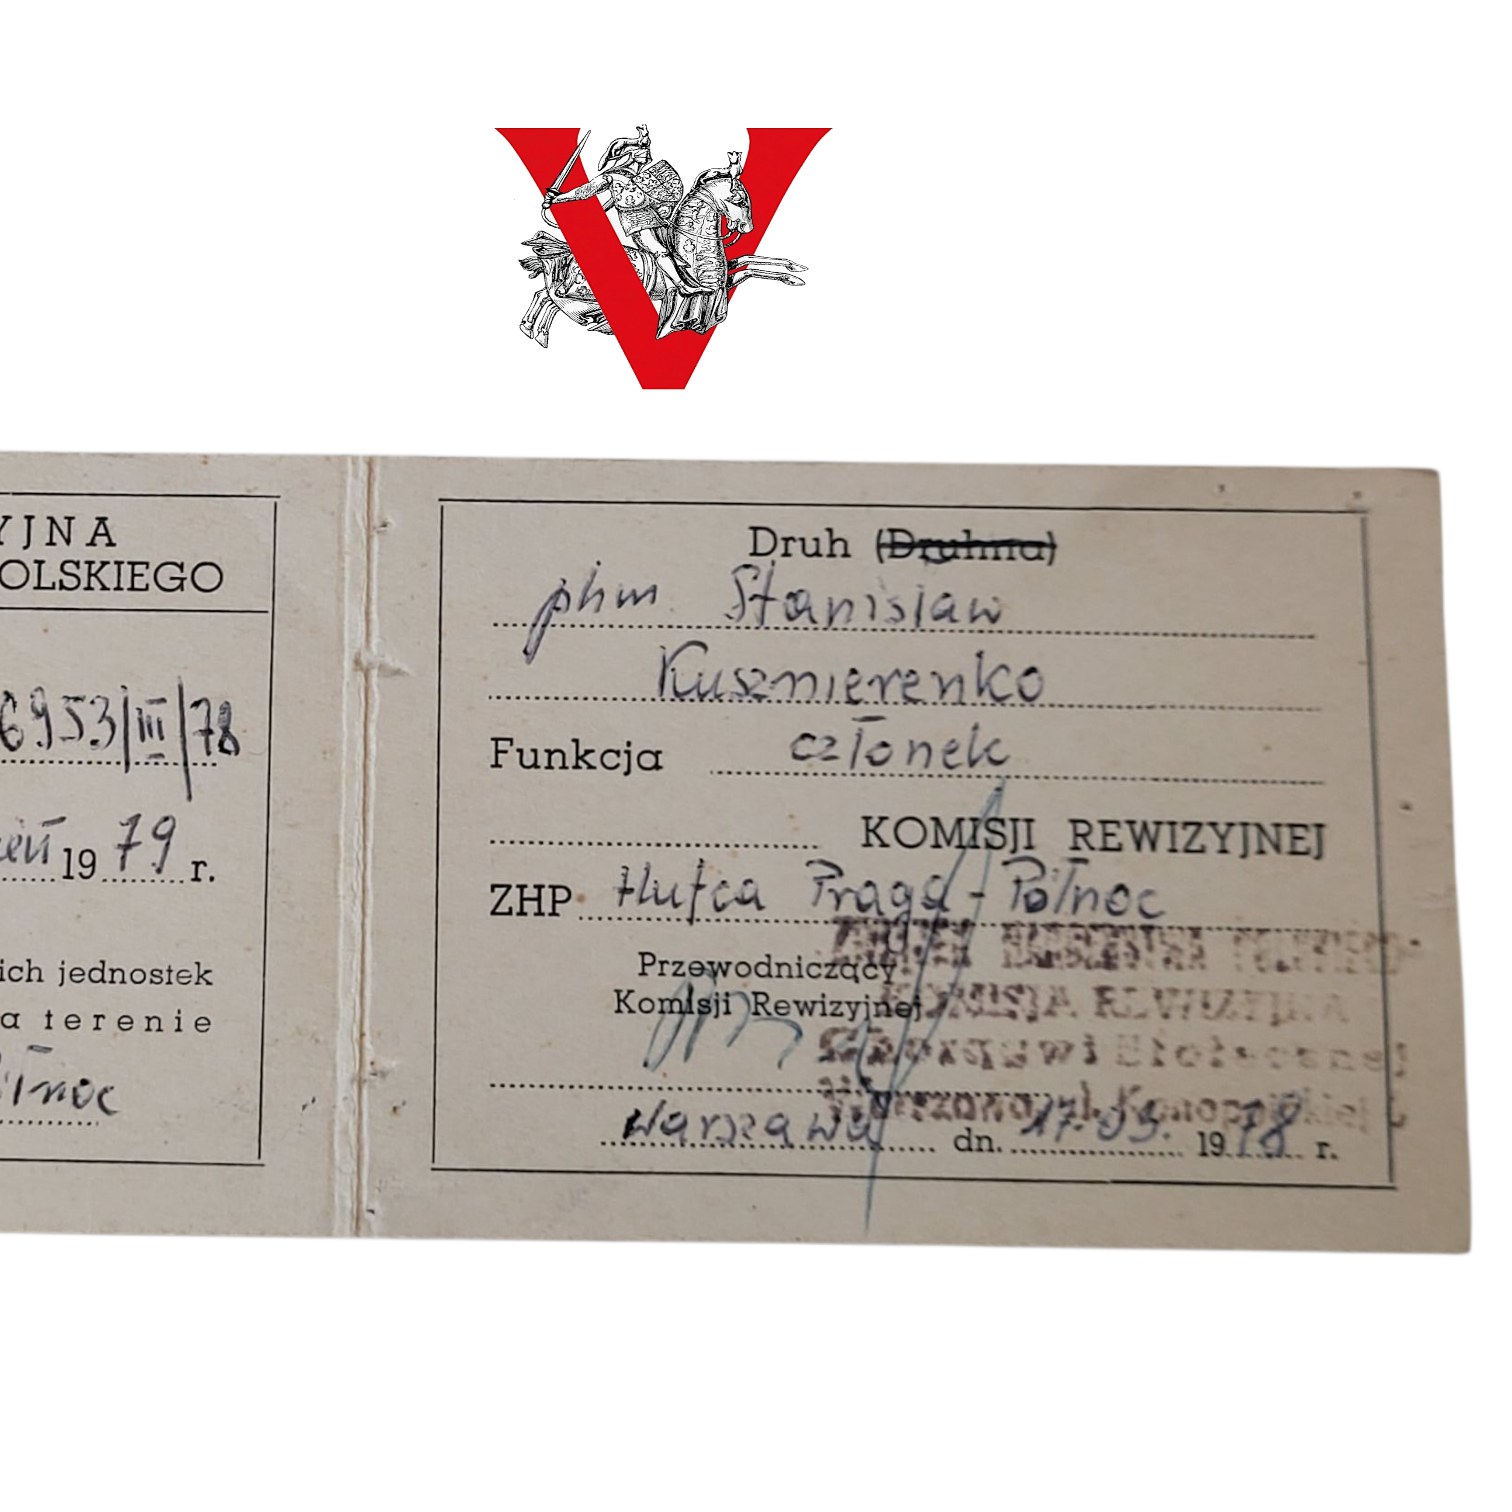 YJNA
OLSKIEGO
6953/III/78
1979 r.
ich jednostek
a terenie
Druh (Druhna)
phm. Stanisław
Kuszmierenko
Funkcja członek
KOMISJI REWIZYJNEJ
ZHP Hufca Praga-Północ
Przewodniczący
Komisji Rewizyjnej
KOMISJA REWIZYJNA
Chorągwi Stołecznej
Warszawa, dn. 17.05. 1978 r.